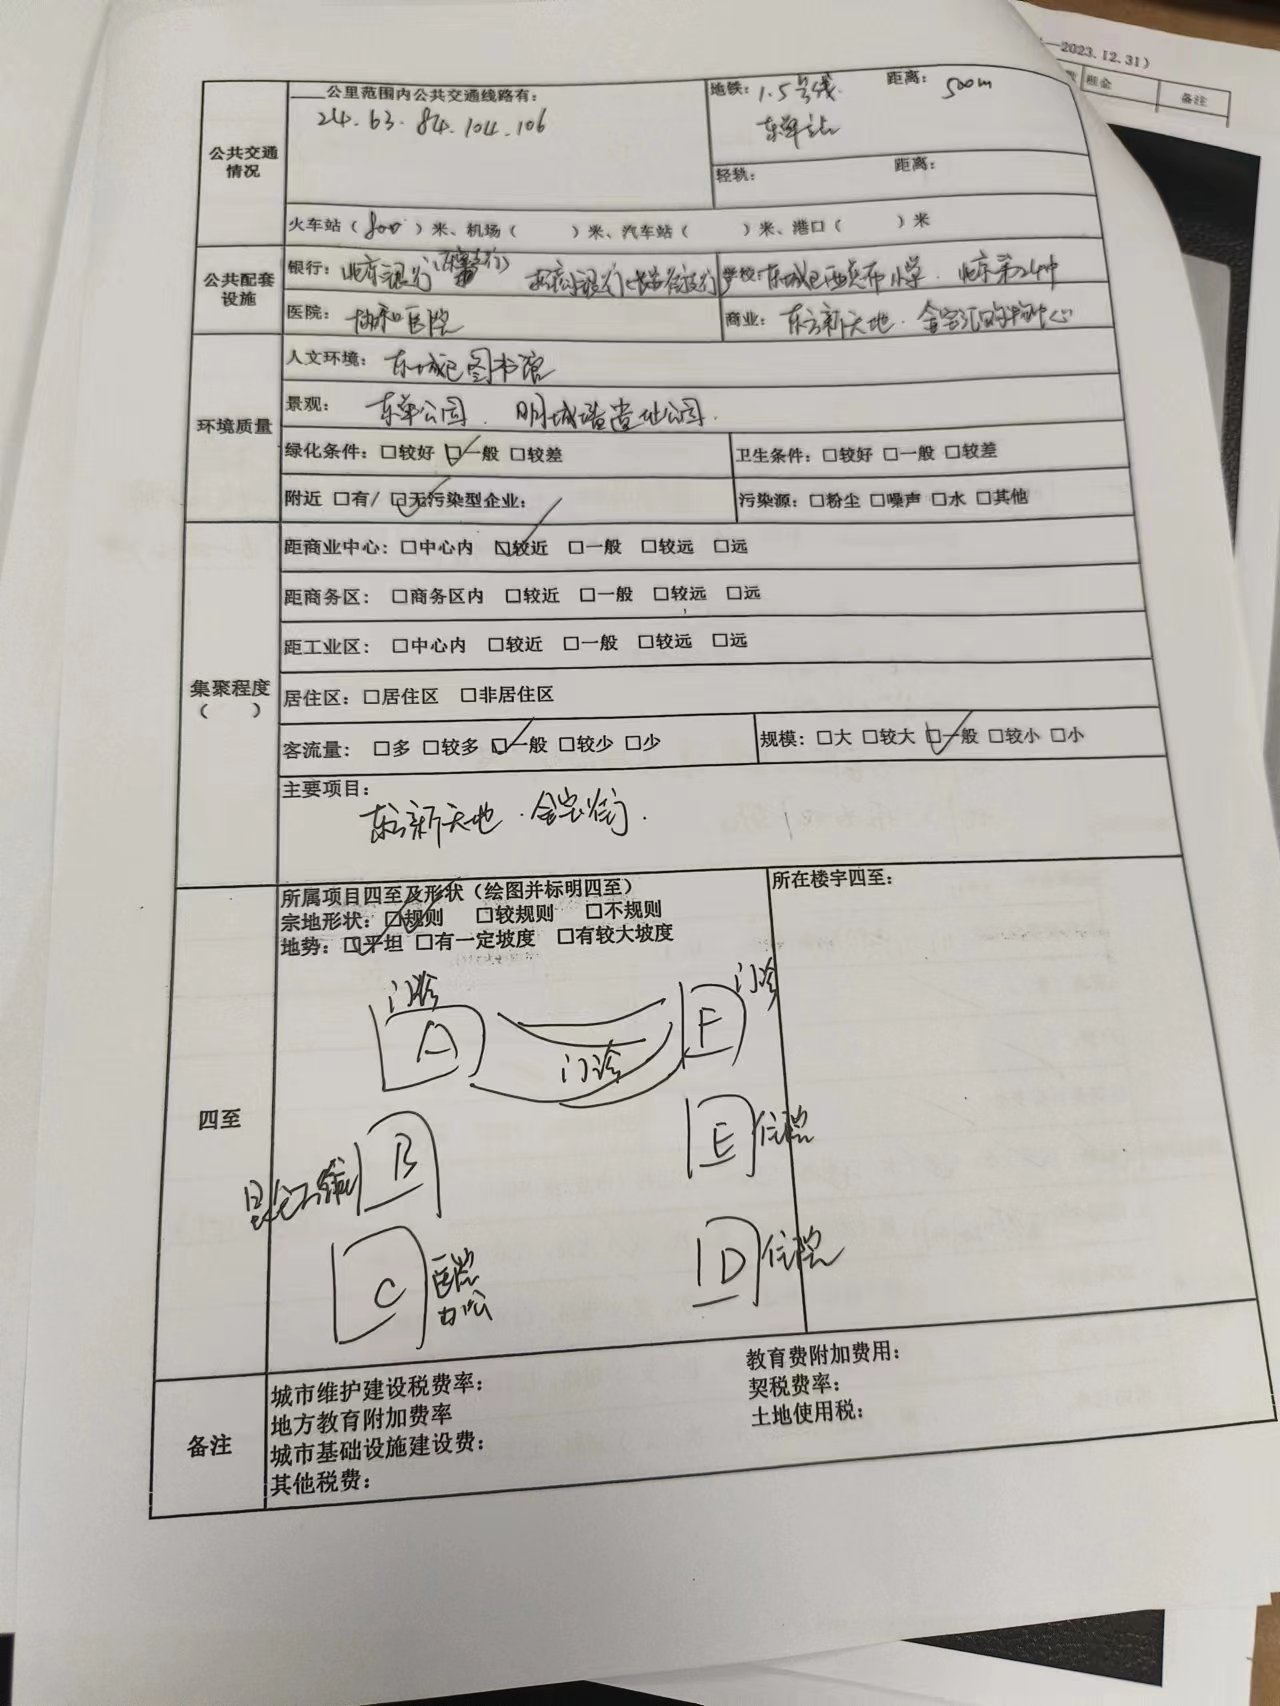 —2023.12.31)
租金
备注
公共交通情况
___公里范围内公共交通线路有:
24.63.84.104.106
地铁: 1.5号线 距离: 500m
东单站
轻轨: 距离:
火车站( 800 )米、机场( )米、汽车站( )米、港口( )米
公共配套设施
银行: 北京银行 学校: 东城区西总布小学. 北京第24中
医院: 协和医院
商业: 东方新天地. 金宝汇购物中心
环境质量
人文环境: 东城区图书馆
景观: 东单公园. 明城墙遗址公园.
绿化条件: □较好 □一般 □较差
卫生条件: □较好 □一般 □较差
附近 □有/ □无污染型企业:
污染源: □粉尘 □噪声 □水 □其他
集聚程度
( )
距商业中心: □中心内 □较近 □一般 □较远 □远
距商务区: □商务区内 □较近 □一般 □较远 □远
距工业区: □中心内 □较近 □一般 □较远 □远
居住区: □居住区 □非居住区
客流量: □多 □较多 □一般 □较少 □少
规模: □大 □较大 □一般 □较小 □小
主要项目:
东方新天地. 金宝街.
四至
所属项目四至及形状(绘图并标明四至)
所在楼宇四至:
宗地形状: □规则 □较规则 □不规则
地势: □平坦 □有一定坡度 □有较大坡度
门诊
A
门诊
F
门诊
B
E
住院
C
医院
办公
D
住院
备注
城市维护建设税费率:
地方教育附加费率
城市基础设施建设费:
其他税费:
教育费附加费用:
契税费率:
土地使用税: